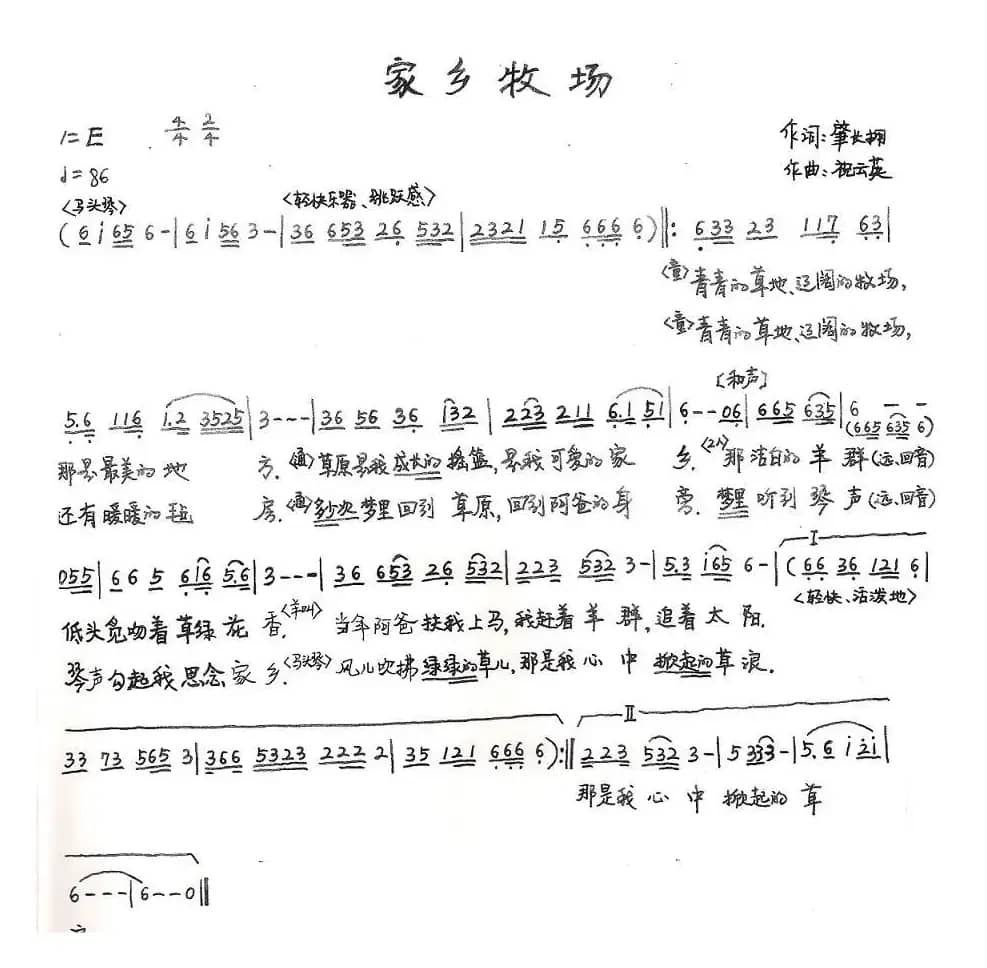 家乡牧场
1=E 4/4 2/4
作词:肇长栩
♩=86
作曲:祝云英
<马头琴> <轻快乐器、跳跃感>
(6 i 65 6 - | 6 i 56 3 - | 36 653 26 532 | 2321 15 666 6) ‖: 633 23 117 63 |
<童>青青的草地、辽阔的牧场,
<童>青青的草地、辽阔的牧场,
[和声]
5.6 116 1.2 3525 | 3 - - - | 36 56 36 i32 | 223 211 6.1 51 | 6 - - 06 | 665 635 | 6 - -
(665 635 6)
那是最美的地 方.<通>草原是我成长的摇篮,是我可爱的家 乡.<2人>那洁白的羊群(远、回音)
还有暖暖的毡 房.<通>多少次梦里回到草原,回到阿爸的身 旁.梦里听到琴声(远、回音)
I
055 | 6 6 5 616 5.6 | 3 - - - | 36 653 26 532 | 223 532 3 - | 5.3 i65 6 - | (66 36 121 6 |
<轻快、活泼地>
低头觅吻着草绿花 香.<羊叫> 当年阿爸扶我上马,我赶着羊群,追着太阳.
琴声勾起我思念家 乡.<马头琴>风儿吹拂绿绿的草儿,那是我心中掀起的草浪.
II
33 73 565 3 | 366 5323 222 2 | 35 121 666 6) :‖ 223 532 3 - | 5 333 - | 5.6 i 2i |
那是我心中掀起的草
6 - - - | 6 - - 0 ‖